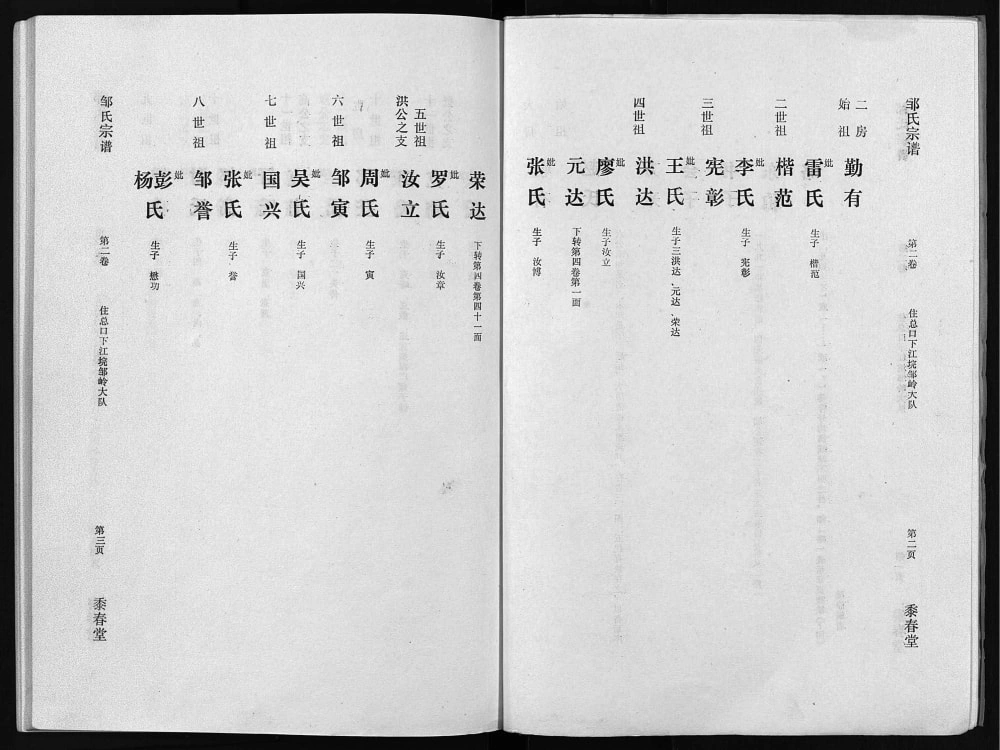 邹氏宗谱
第二卷
住总口下江垸邹岭大队
第二页
黍春堂
二房
始祖
勤有
妣
雷氏
生子 楷范
二世祖
楷范
妣
李氏
生子 宪彰
三世祖
宪彰
妣
王氏
生子三洪达、元达、荣达
四世祖
洪达
妣
廖氏
生子汝立
元达
下转第四卷第一面
妣
张氏
生子 汝博
荣达
下转第四卷第四十一面
妣
罗氏
生子 汝章
五世祖
洪公之支
汝立
妣
周氏
生子 寅
六世祖
邹寅
妣
吴氏
生子 国兴
七世祖
国兴
妣
张氏
生子 誉
八世祖
邹誉
妣
彭
杨
氏
生子 懋功
邹氏宗谱
第二卷
住总口下江垸邹岭大队
第三页
黍春堂